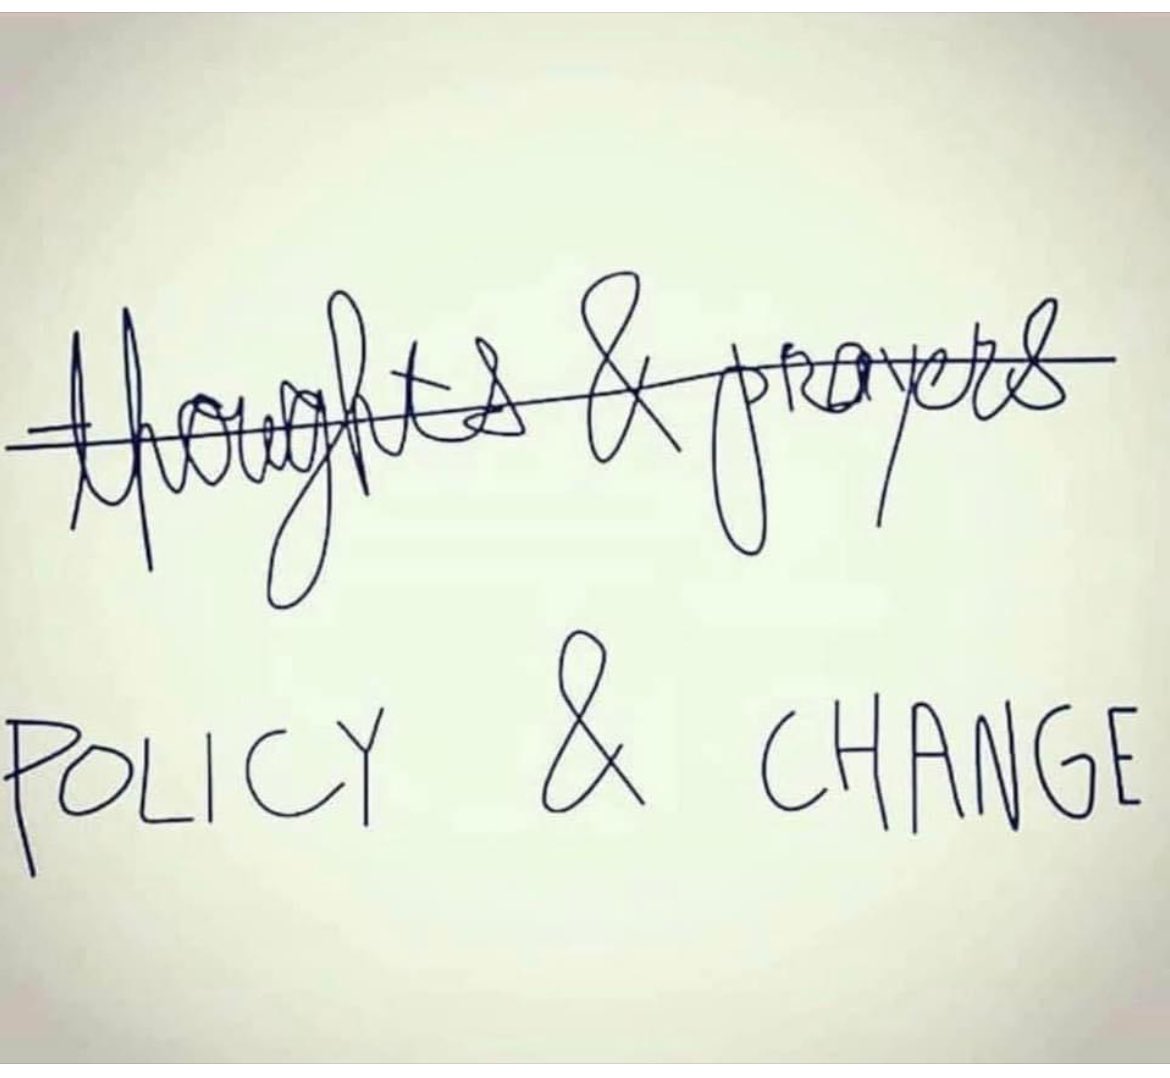 thoughts & prayers
POLICY & CHANGE